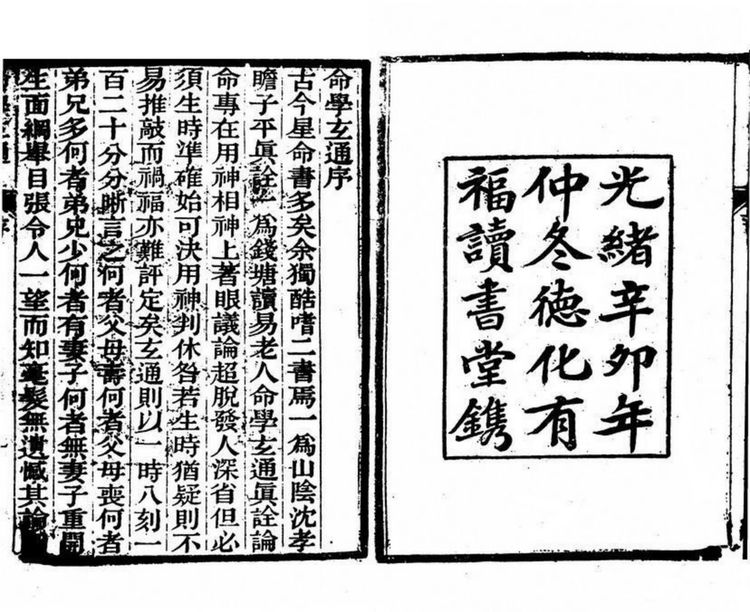 光緒辛卯年
仲冬徳化有
福讀書堂鐫
命學玄通序
古今星命書多矣余獨酷嗜二書焉一為山陰沈孝
瞻子平眞詮一為錢塘讀易老人命學玄通眞詮論
命專在用神相神上著眼議論超脫發人深省但必
須生時準確始可決用神判休咎若生時猶疑則不
易推敲而禍福亦難評定矣玄通則以一時八刻一
百二十分分晰言之何者父母壽何者父母喪何者
弟兄多何者弟兄少何者有妻子何者無妻子重開
生面綱舉目張令人一望而知毫髮無遺憾其論